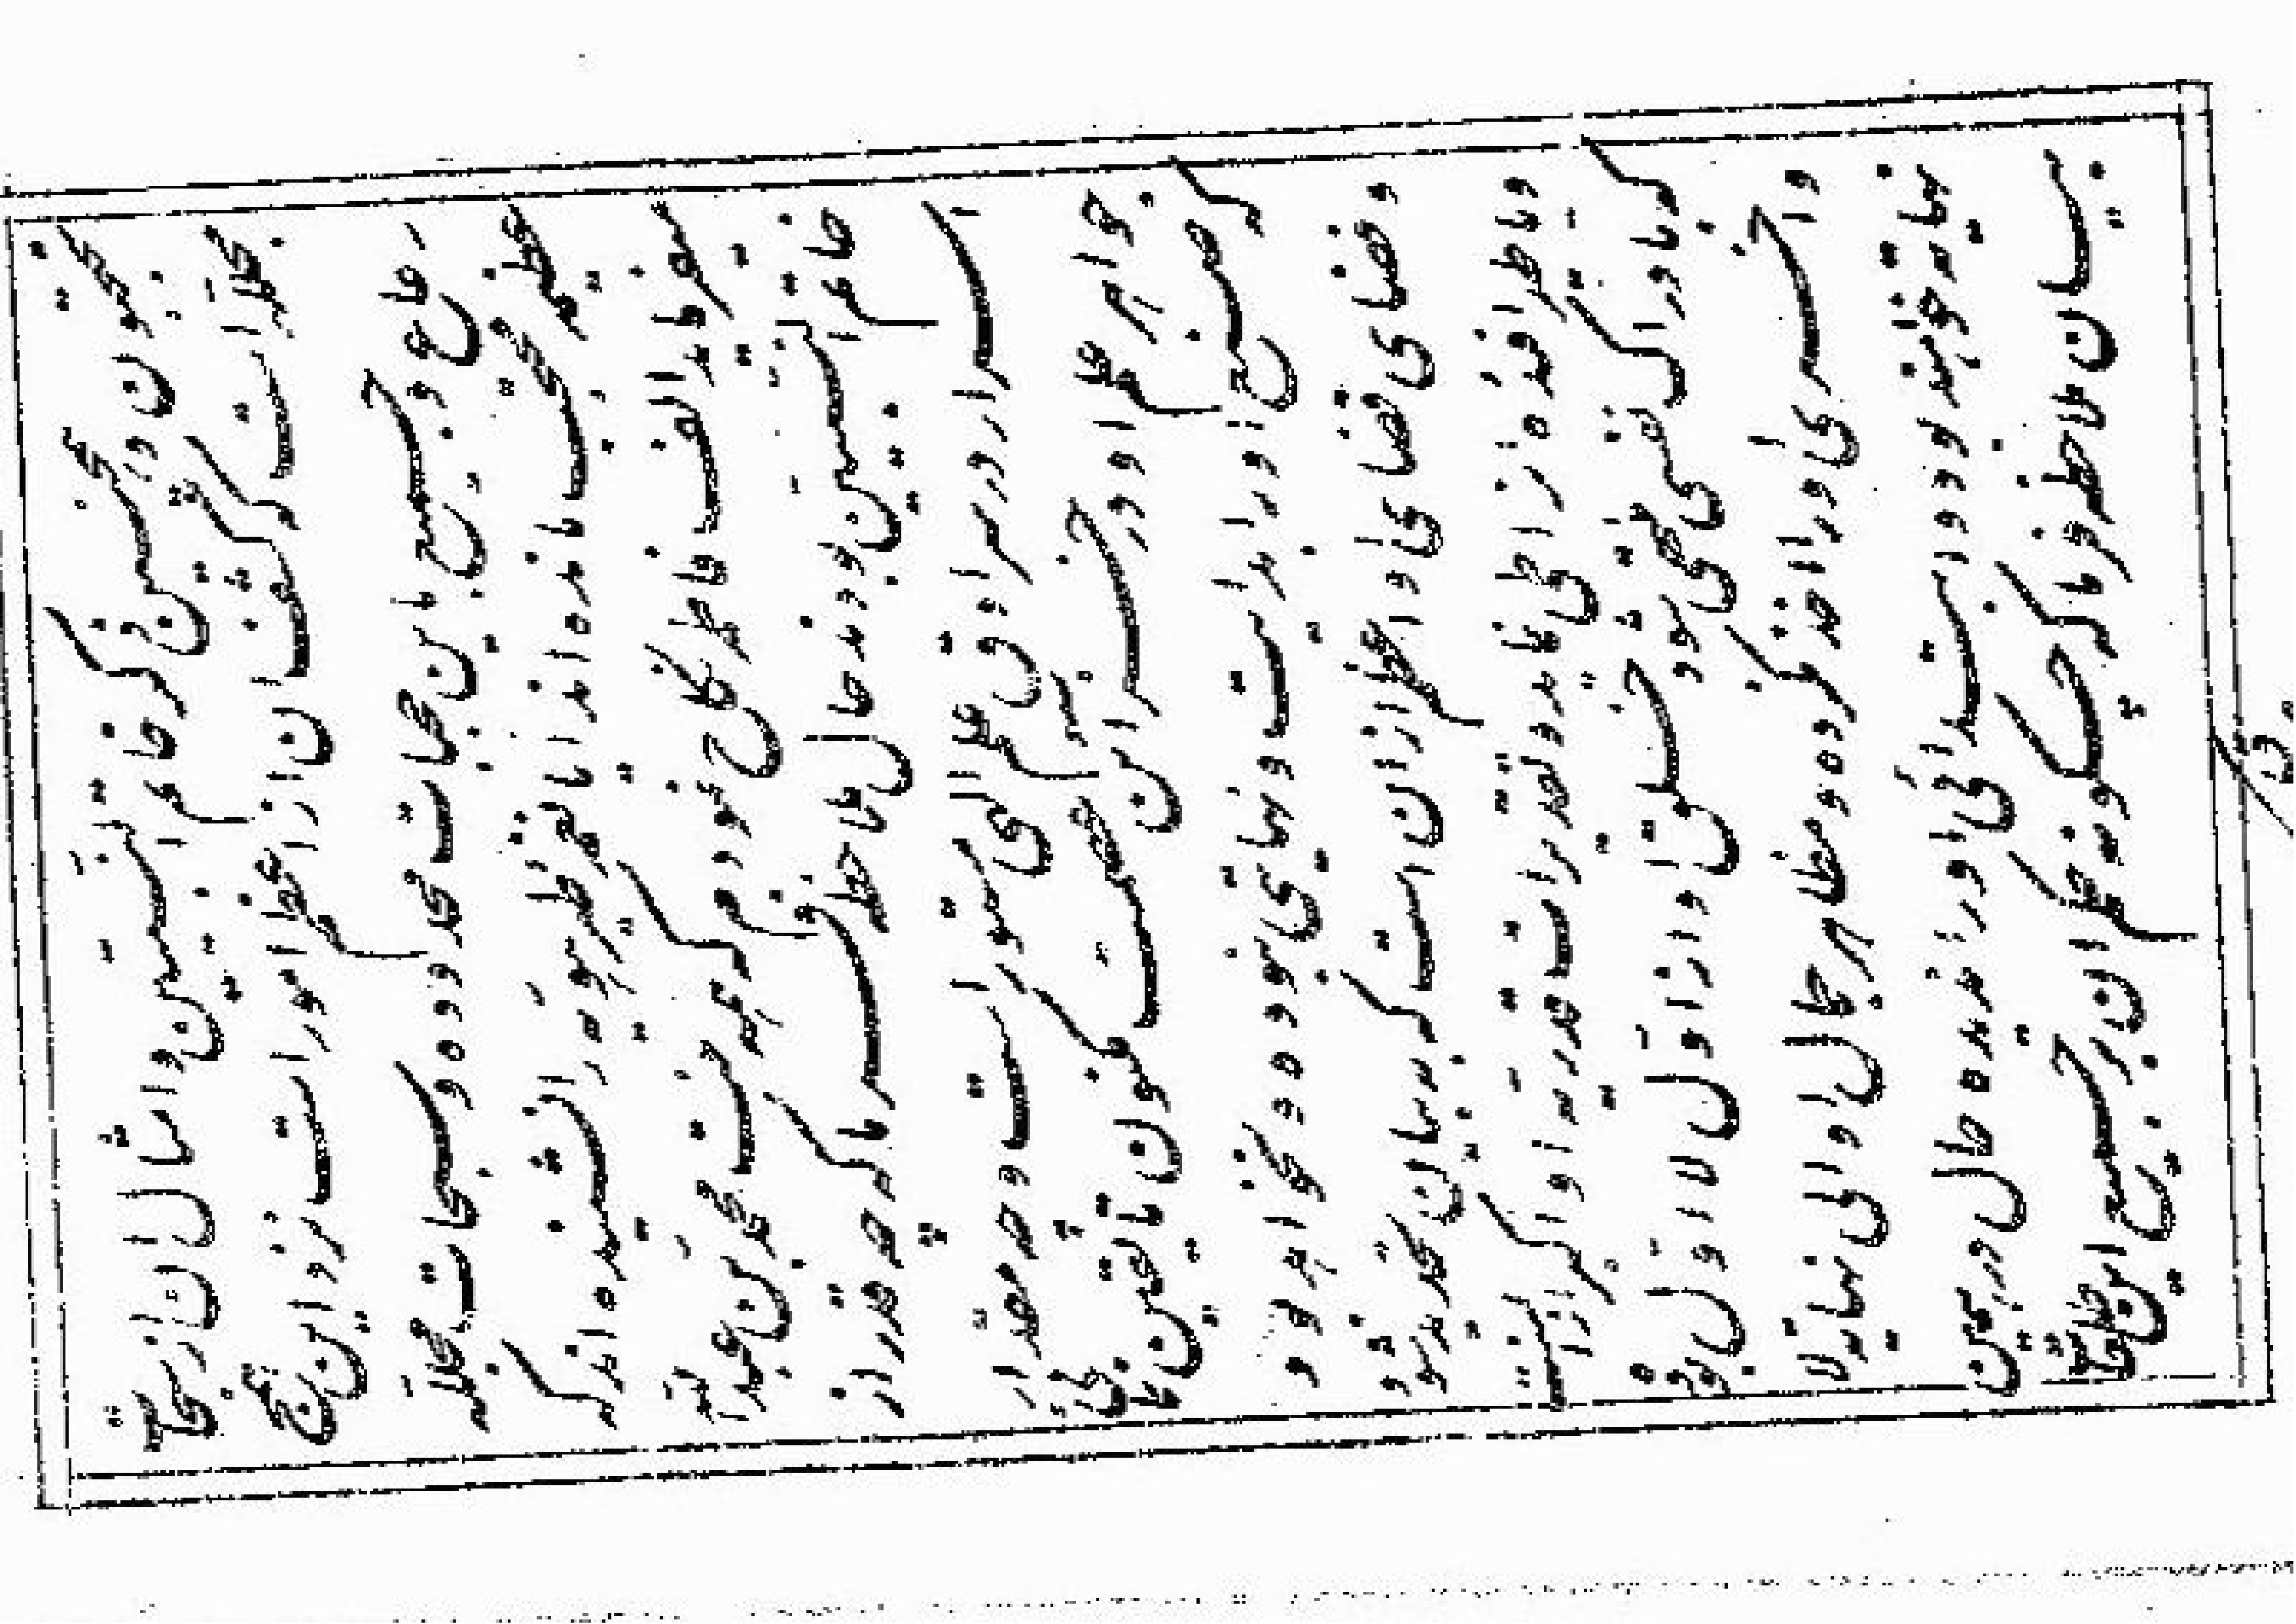 همچون در حین ذکر خاتم النبیین و امثال آن از سبحات
مجلله است که کشف آن از اعظم امور است نزد این همج
رعاع و جمیع باین حجبات محدوده و سبحات مجلله
عظیمه محتجب مانده اند ایا نغمه طیر هویه را نشنیده اند که
میفرماید الف فاطمه نکاح نمودم که همه بنت محمد بن عبدالله
خاتم النبیین بودند حال ملاحظه فرما که چه قدر از
اسرار در سرادق علم الهی مستور است و چه مقدار
جواهر علم او در خزائن عصمت مکنون تا یقین نمائی
که صنع او را بدایت و نهایتی نبوده و نخواهد بود و
و فضای قضای او اعظم از آن است که به بیان تحدید شود
و یا طیر افئده آن را طی نماید و تقدیرات قدریه او اکبر از آنست
که باوراک نفسی منتهی شود خلق او از اول لا اول بوده
و اخری او را اخذ نکرده و مظاهر جمال او الی نهایه لا
نهایه خواهند بود و ابتدائی او را ندیده حال در همین
بیان ملاحظه فرما که چگونه حکم ان بر جمیع این طلعات